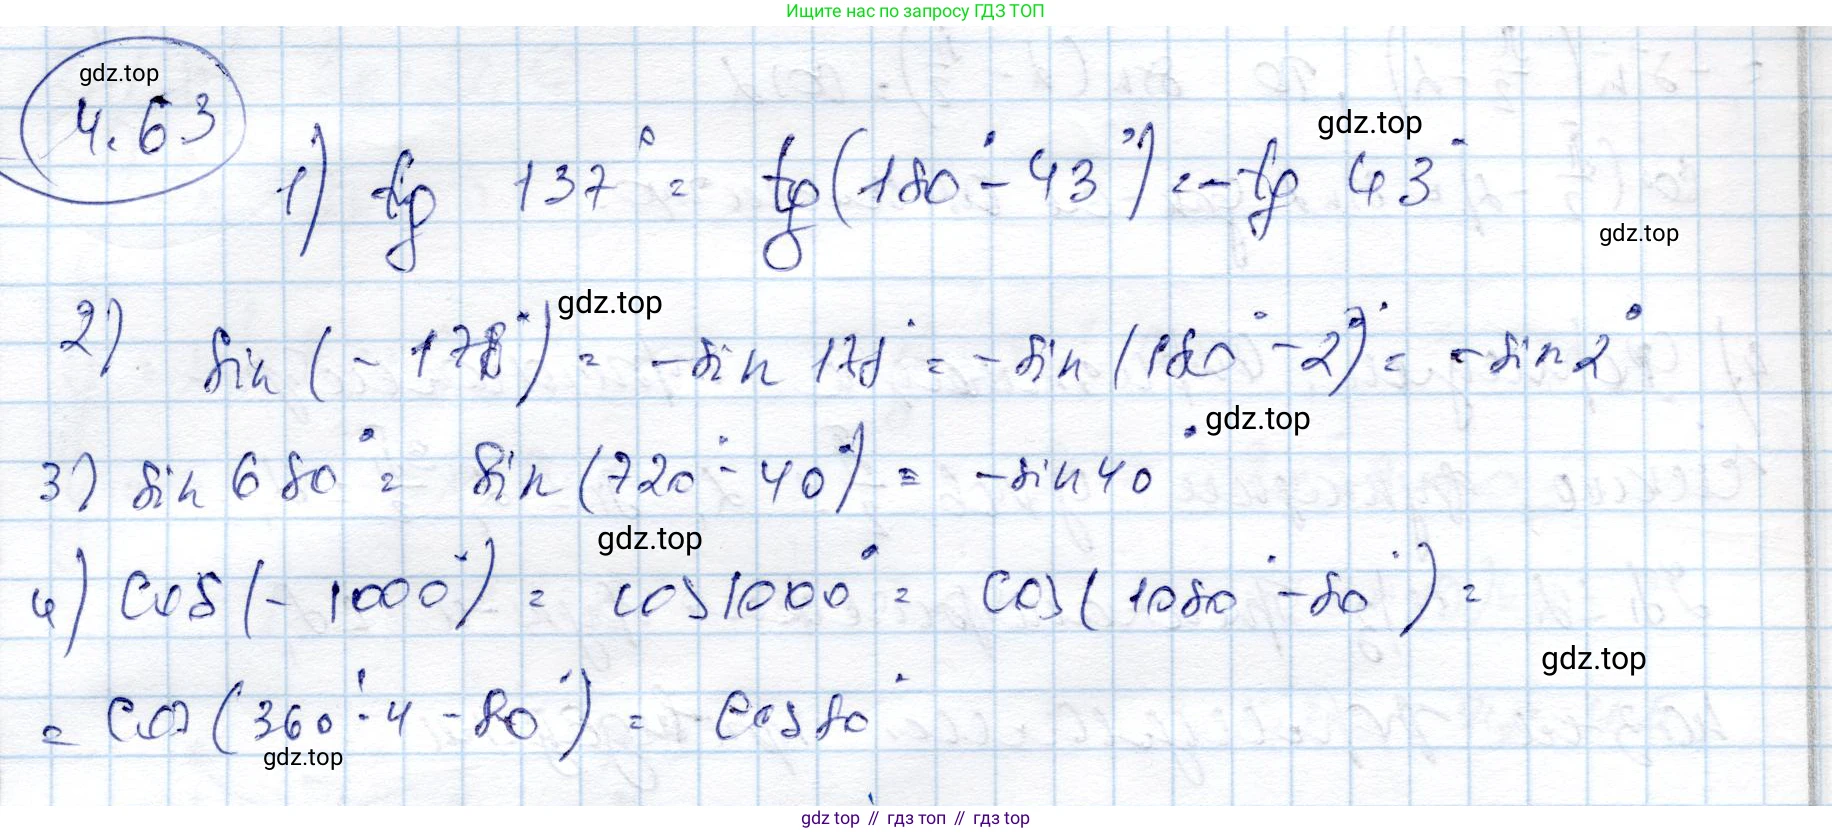 Ищите нас по запросу ГДЗ ТОП
gdz.top
4.63
gdz.top
1) tg 137° = tg(180° - 43°) = -tg 43°
gdz.top
gdz.top
2) sin(-178°) = -sin 178° = -sin(180° - 2°) = -sin 2°
gdz.top
3) sin 680° = sin(720° - 40°) = -sin 40°
gdz.top
4) cos(-1000°) = cos 1000° = cos(1080° - 80°) =
gdz.top
= cos(360°·4 - 80°) = cos 80°
gdz.top
gdz top // гдз топ // гдз top